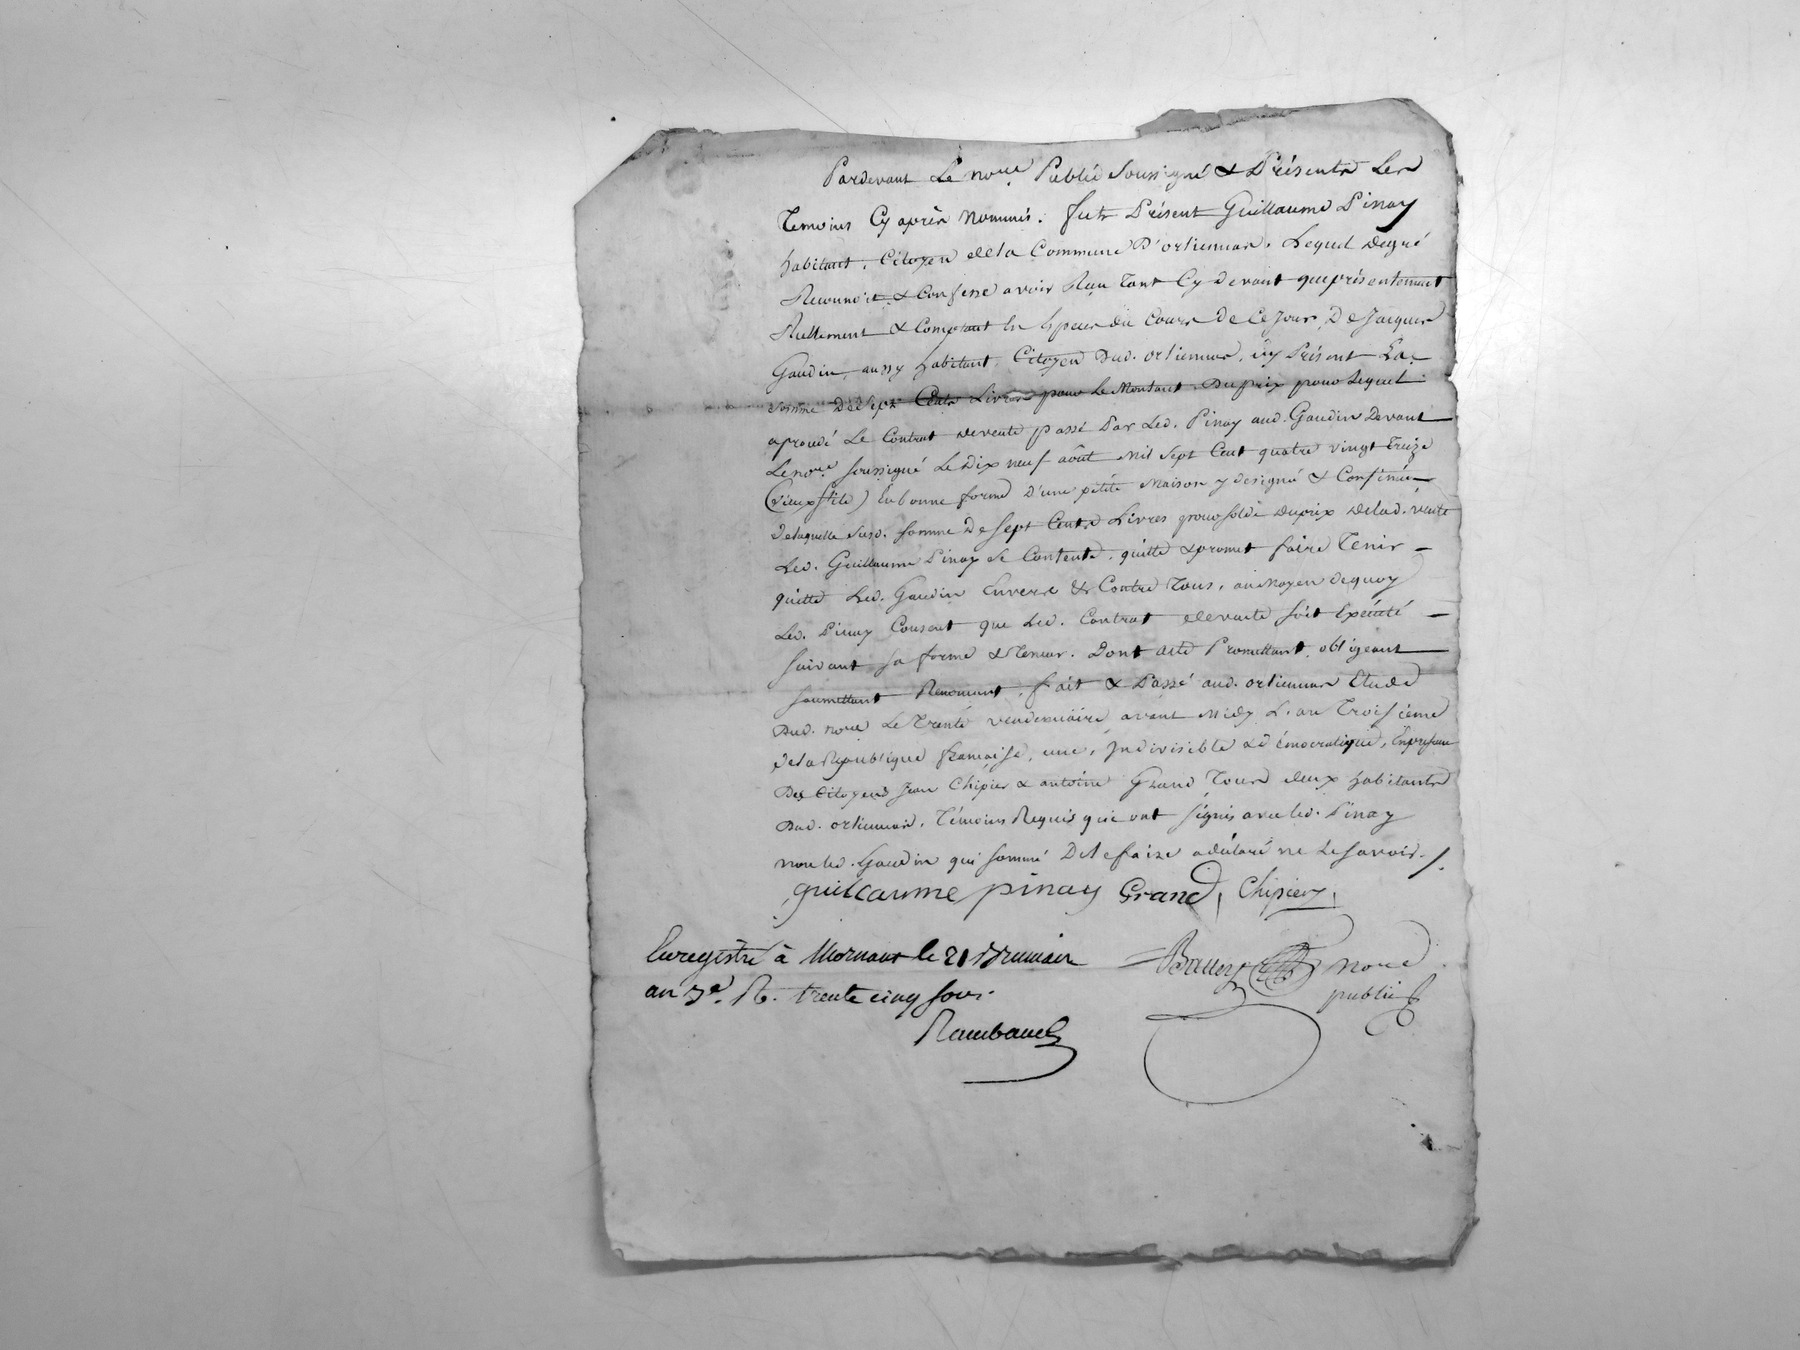 Pardevant Le no.re Public Soussigné & Présents Les
Temoins Cy après Nommés. fut Présent Guillaume Pinay
habitant, Citoyen de la Commune D'orliennas. Lequel degré
Reconnoit & Confesse avoir Reçu Tant Cy devant que présentement
Réellement & Comptant En Espèces du Cours de Ce Jour, De Jacques
Gaudin, aussy habitant, Citoyen Dud. orliennas, icy Présent La
Somme De Sept Cents Livres pour Le Montant Du prix pour Lequel
Le Contrat de vente passé Par Led. Pinay aud. Gaudin Devant
Le no.re soussigné Le Dix neuf août Mil Sept Cent quatre vingt Treize
(vieux stile) En bonne forme D'une petite Maison y designé & Confinée
De laquelle Susd. Somme De Sept Cents Livres pour solde Du prix De lad. vente
Led. Guillaume Pinay Se Contente, quitte & promet faire Tenir
quitte Led. Gaudin Envers & Contre Tous, au Moyen de quoy
Led. Pinay Consent que Led. Contrat de vente soit Exécuté
suivant sa forme & Teneur. Dont acte Promettant, obligeant
soumettant Renonçant, fait & Passé aud. orliennas Etude
Dud. no.re Le Trente vendemiaire avant Midy L'an Troisième
de la République française, une, Indivisible & démocratique, En présence
Des Citoyens Jean Chipier & antoine Grand Tous deux habitants
Dud. orliennas, Témoins Requis qui ont signés avec led. Pinay
non led. Gaudin qui sommé De le faire a déclaré ne Le savoir. /.
guillaume pinay Grand Chipier
Enregistré à Mornant le 21 Brumaire
an 3e. R. trente cinq sous.
no.re
public
Rambaud